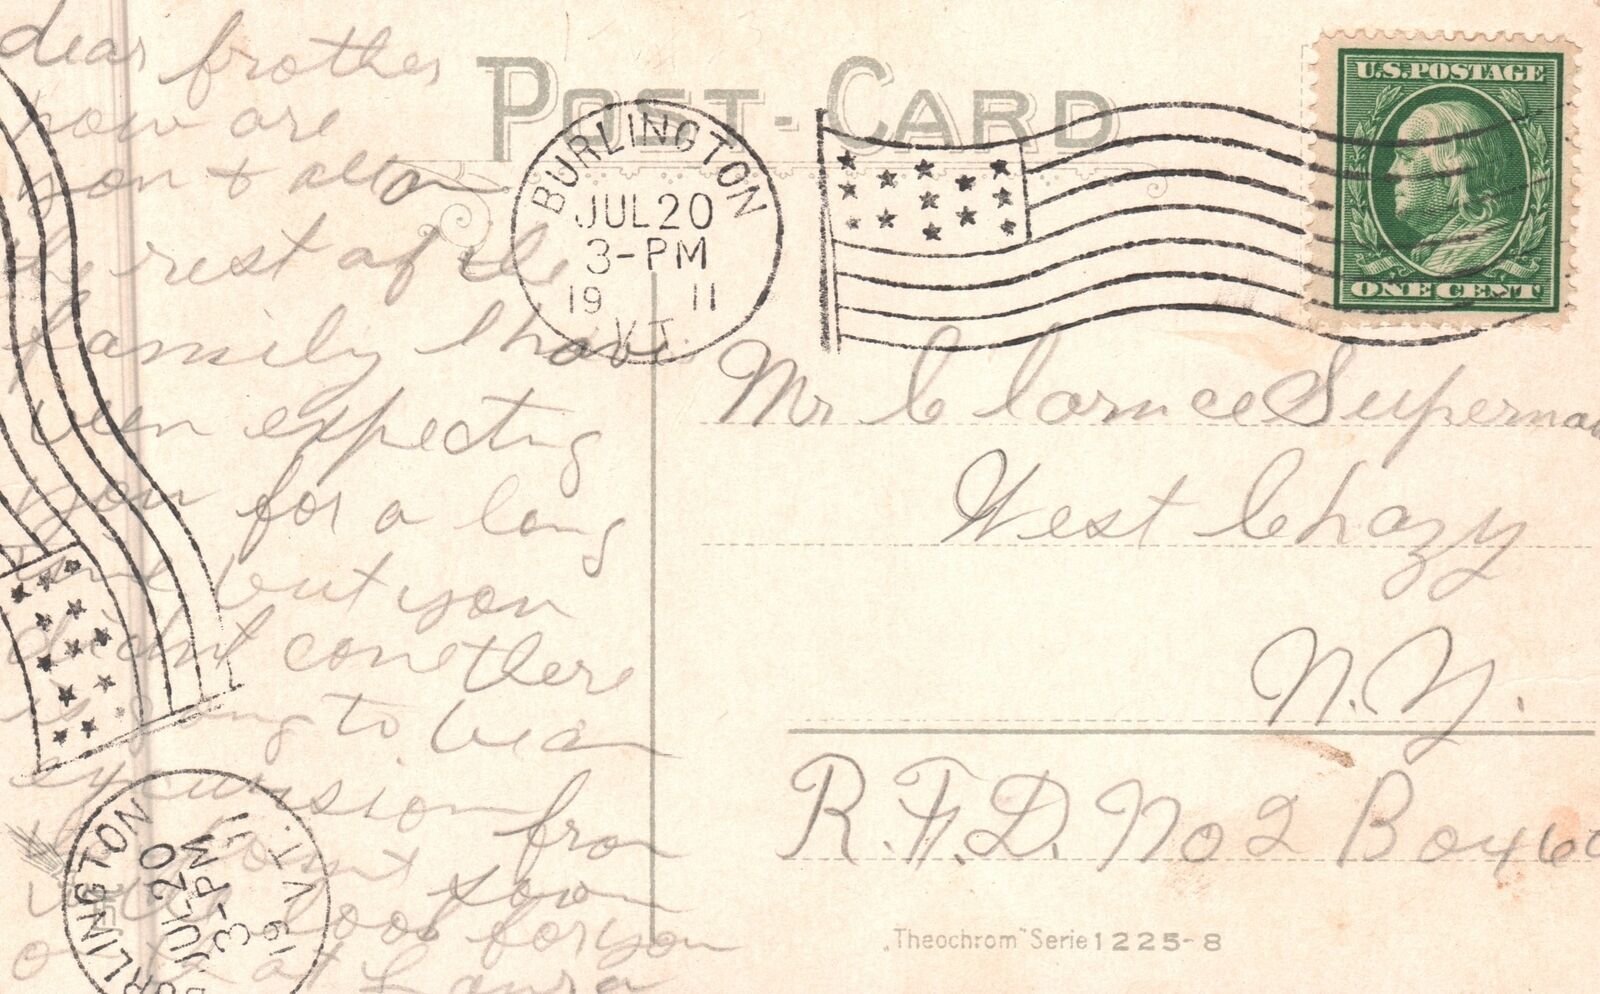 POST-CARD
U.S. POSTAGE
ONE CENT
BURLINGTON
JUL 20
3-PM
19 11
VT.
dear brother
how are
you &
the rest of the
family I have
been expecting
you for a long
time but you
didnt come there
is going to be an
excursion from
soon
will look for you
at Laura
Mr Clarnce Superna
West Chazy
N.Y.
R.F.D. No 2 Box 60
„Theochrom“ Serie 1225-8
BURLINGTON
JUL 20
3-PM
19 11
VT.